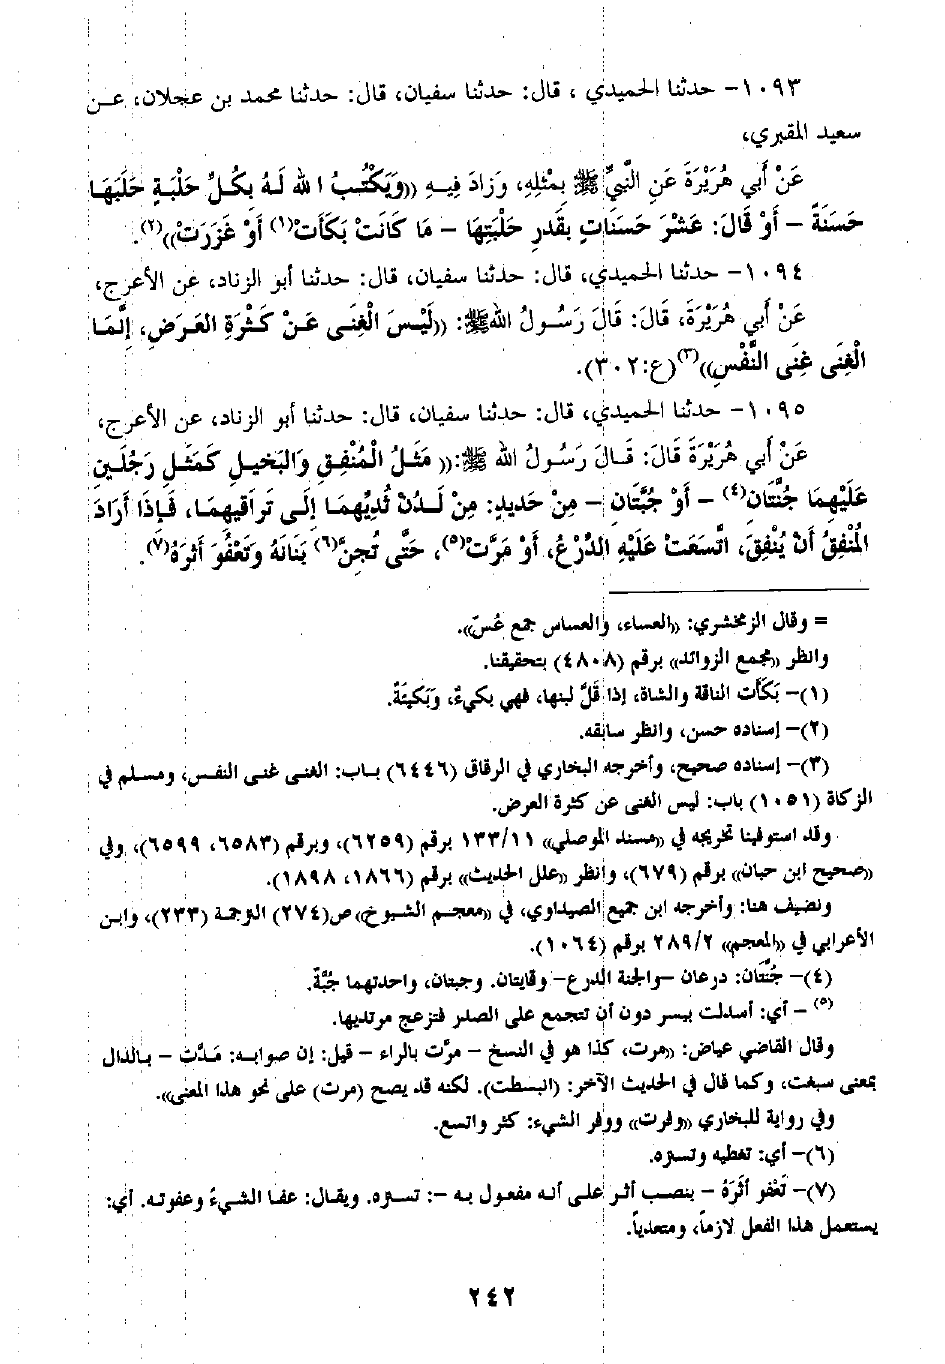 ١٠٩٣- حدثنا الحميدي ، قال: حدثنا سفيان، قال: حدثنا محمد بن عجلان، عن
سعيد المقبري،
عَنْ أَبِي هُرَيْرَةَ عَنِ النَّبِيِّ ﷺ بِمِثْلِهِ، وَزَادَ فِيهِ ((وَيَكْتُبُ الله لَهُ بِكُلِّ حَلْبَةٍ حَلَبَهَا
حَسَنَةً – أَوْ قَالَ: عَشْرَ حَسَنَاتٍ بِقَدرِ حَلْبَتِهَا – مَا كَانَتْ بَكَأَتْ(١) أَوْ غَزَرَتْ))(٢).
١٠٩٤- حدثنا الحميدي، قال: حدثنا سفيان، قال: حدثنا أبو الزناد، عن الأعرج،
عَنْ أَبِي هُرَيْرَةَ، قَالَ: قَالَ رَسُولُ اللهﷺ: ((لَيْسَ الْغِنَى عَنْ كَثْرَةِ العَرَضِ، إِنَّمَا
الْغِنَى غِنَى النَّفْسِ))(٣)(ع:٣٠٢).
١٠٩٥- حدثنا الحميدي، قال: حدثنا سفيان، قال: حدثنا أبو الزناد، عن الأعرج،
عَنْ أَبِي هُرَيْرَةَ قَالَ: قَالَ رَسُولُ الله ﷺ:(( مَثَلُ الْمُنْفِقِ وَالبَخيلِ كَمَثَلِ رَجُلَينِ
عَلَيْهِمَا جُنَّتَان(٤) – أَوْ جُبَّتَان – مِنْ حَديدٍ: مِنْ لَدُنْ ثُدِيِّهِمَا إِلَى تَرَاقيهِمَا، فَإِذَا أَرَادَ
الْمُنْفِقُ أَنْ يُنْفِقَ، اتَّسَعَتْ عَلَيْهِ الدِّرْعُ، أَوْ مَرَّتْ(٥)، حَتَّى تُجِنَّ(٦) بَنَانَهُ وَتَعْفُوَ أَثَرَهُ(٧).
= وقال الزمخشري: ((العساء، والعساس جمع عُسّ)).
وانظر ((مجمع الزوائد)) برقم (٤٨٠٨) بتحقيقنا.
(١)- بَكَأَت الناقة والشاة، إذا قَلَّ لبنها، فهي بكيءٌ، وَبَكيئَةٌ.
(٢)- إسناده حسن، وانظر سابقه.
(٣)- إسناده صحيح، وأخرجه البخاري في الرقاق (٦٤٤٦) باب: الغنى غنى النفس، ومسلم في
الزكاة (١٠٥١) باب: ليس الغنى عن كثرة العرض.
وقد استوفينا تخريجه في ((مسند الموصلي)) ١٣٣/١١ برقم (٦٢٥٩)، وبرقم (٦٥٨٣، ٦٥٩٩)، وفي
((صحيح ابن حبان)) برقم (٦٧٩)، وانظر ((علل الحديث)) برقم (١٨٦٦، ١٨٩٨).
ونضيف هنا: وأخرجه ابن جميع الصيداوي، في ((معجم الشيوخ)) ص(٢٧٤) الترجمة (٢٣٣)، وابن
الأعرابي في ((المعجم)) ٢٨٩/٢ برقم (١٠٦٤).
(٤)- جُنَّتَان: درعان –والجنة الدرع– وقايتان. وجبتان، واحدتهما جُبَّةٌ.
(٥) – أي: أسدلت بيسر دون أن تتجمع على الصدر فتزعج مرتديها.
وقال القاضي عياض: ((مرت، كذا هو في النسخ – مرَّت بالراء – قيل: إن صوابه: مَدَّت – بالدال
بمعنى سبغت، وكما قال في الحديث الآخر: (انبسطت). لكنه قد يصح (مرت) على نحو هذا المعنى)).
وفي رواية للبخاري ((وفرت)) ووفر الشيء: كثر واتسع.
(٦)- أي: تغطيه وتستره.
(٧)- تَعْفو أَثَرَهُ – بنصب أثر على أنه مفعول به –: تستره. ويقال: عفا الشيءُ وعفوته. أي:
يستعمل هذا الفعل لازماً، ومتعدياً.
٢٤٢